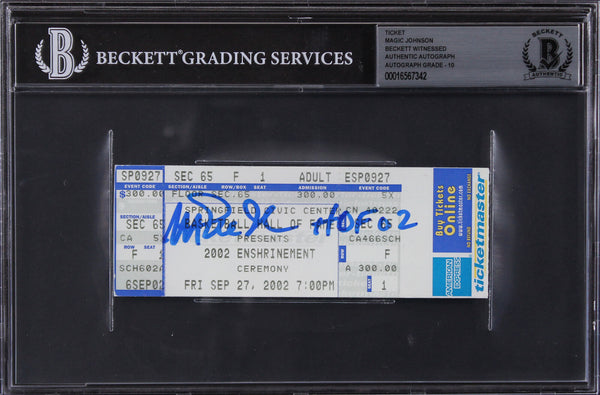 BECKETT GRADING SERVICES
TICKET
MAGIC JOHNSON
BECKETT WITNESSED
AUTHENTIC AUTOGRAPH
AUTOGRAPH GRADE - 10
00016567342
BECKETT
AUTHENTIC
SP0927 SEC 65 F 1 ADULT ESP0927
EVENT CODE SECTION/AISLE ROW/BOX SEAT ADMISSION EVENT CODE
$300.00 FLOOR SEC.65 300.00 5X
SECTION/AISLE SPRINGFIELD CIVIC CENTER CN 40222
SEC 65 BASKETBALL HALL OF FAME SEC
CA 5 PRESENTS CA466SCH
F 1 2002 ENSHRINEMENT F
SCH602A CEREMONY A 300.00
6SEP02 FRI SEP 27, 2002 7:00PM 1
HOF 02
Buy Tickets
Online
www.ticketmaster.com
NO REFUND
NO EXCHANGE
AMERICAN
EXPRESS
ticketmaster